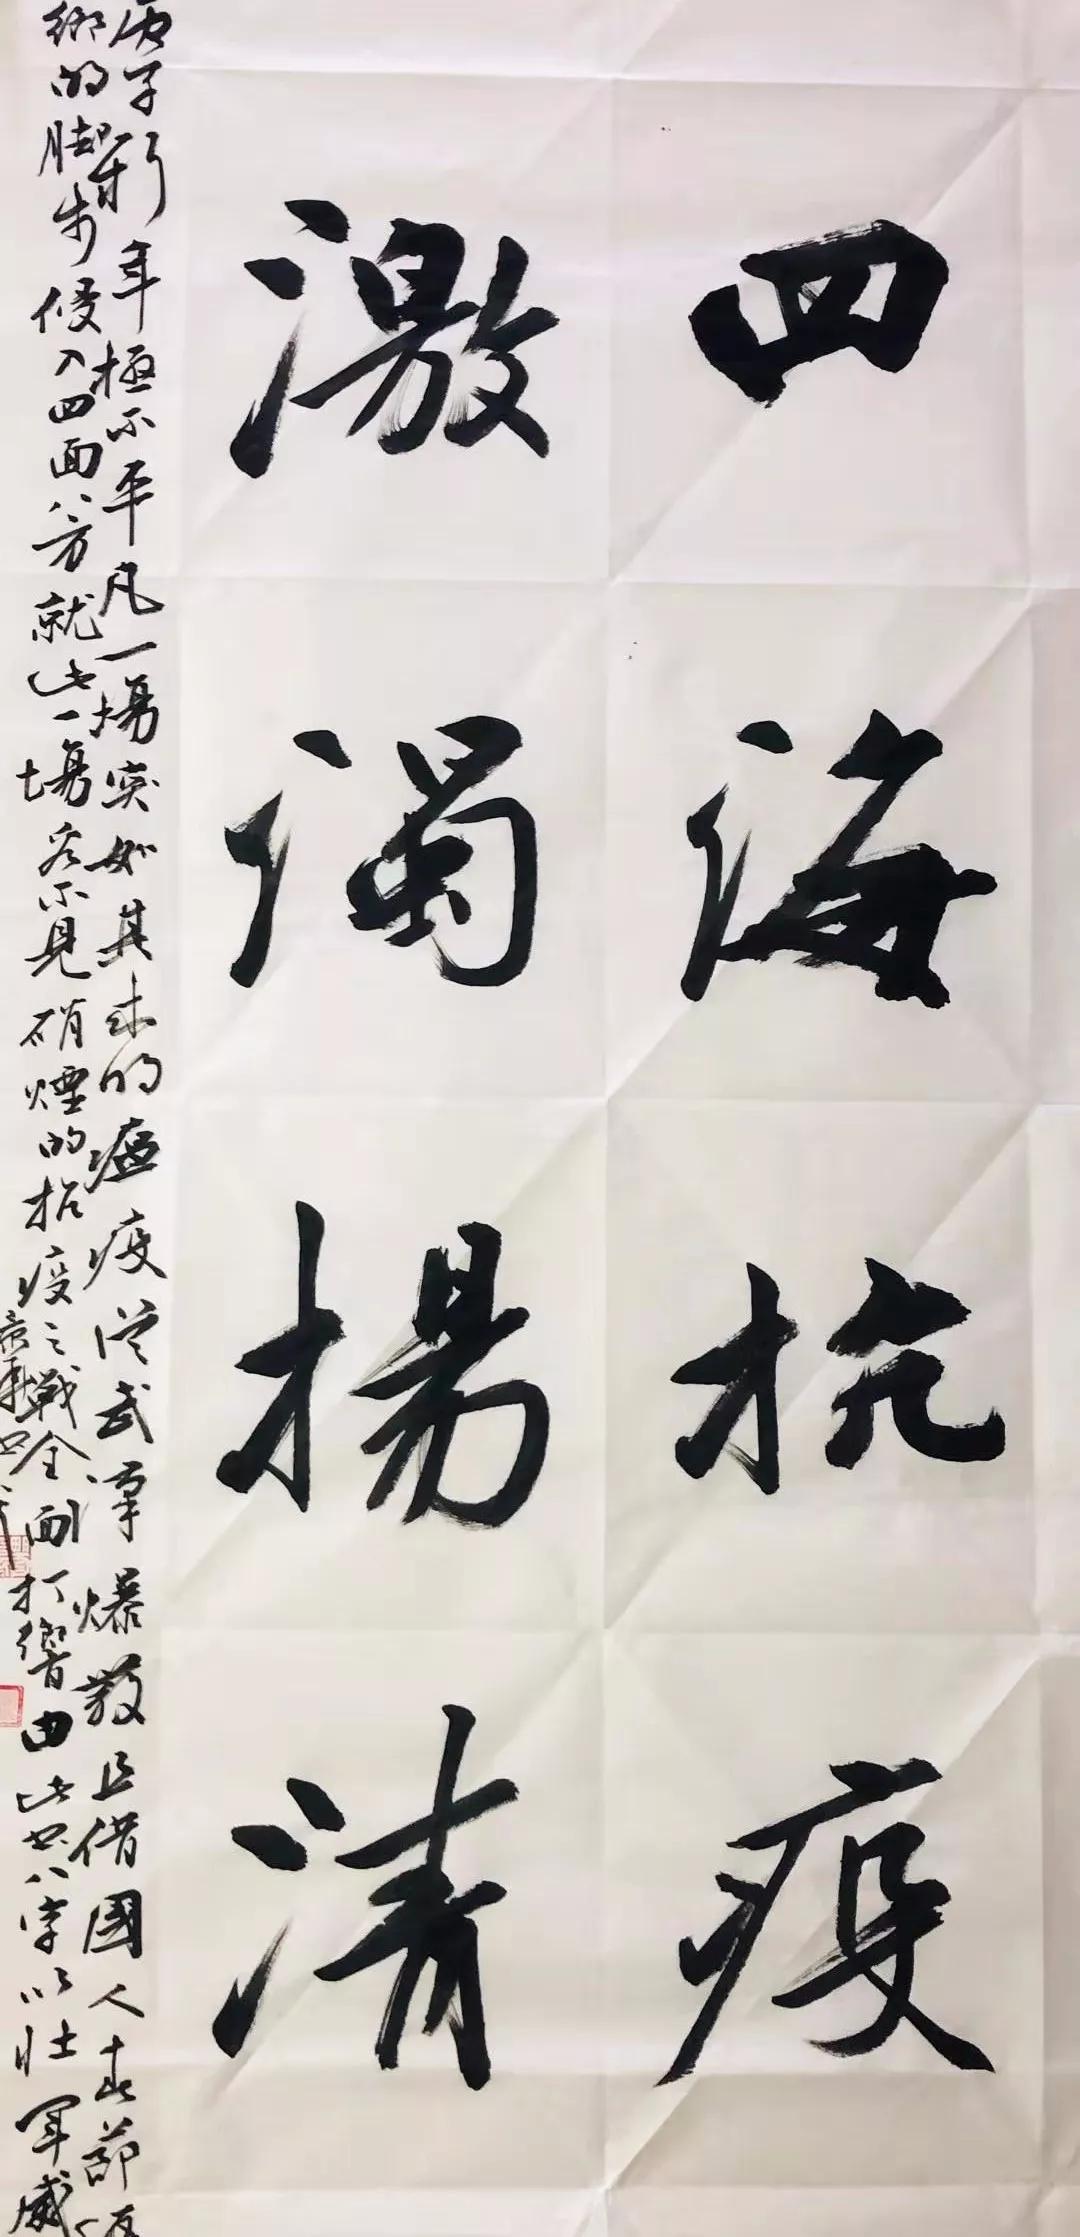 四海抗疫
激濁揚清
庚子新年極不平凡一場突如其来的瘟疫從武漢爆發且借國人春節返
鄉的脚步侵入四面八方就此一場看不見硝煙的抗疫之戰全面打響由此書八字以壯軍威